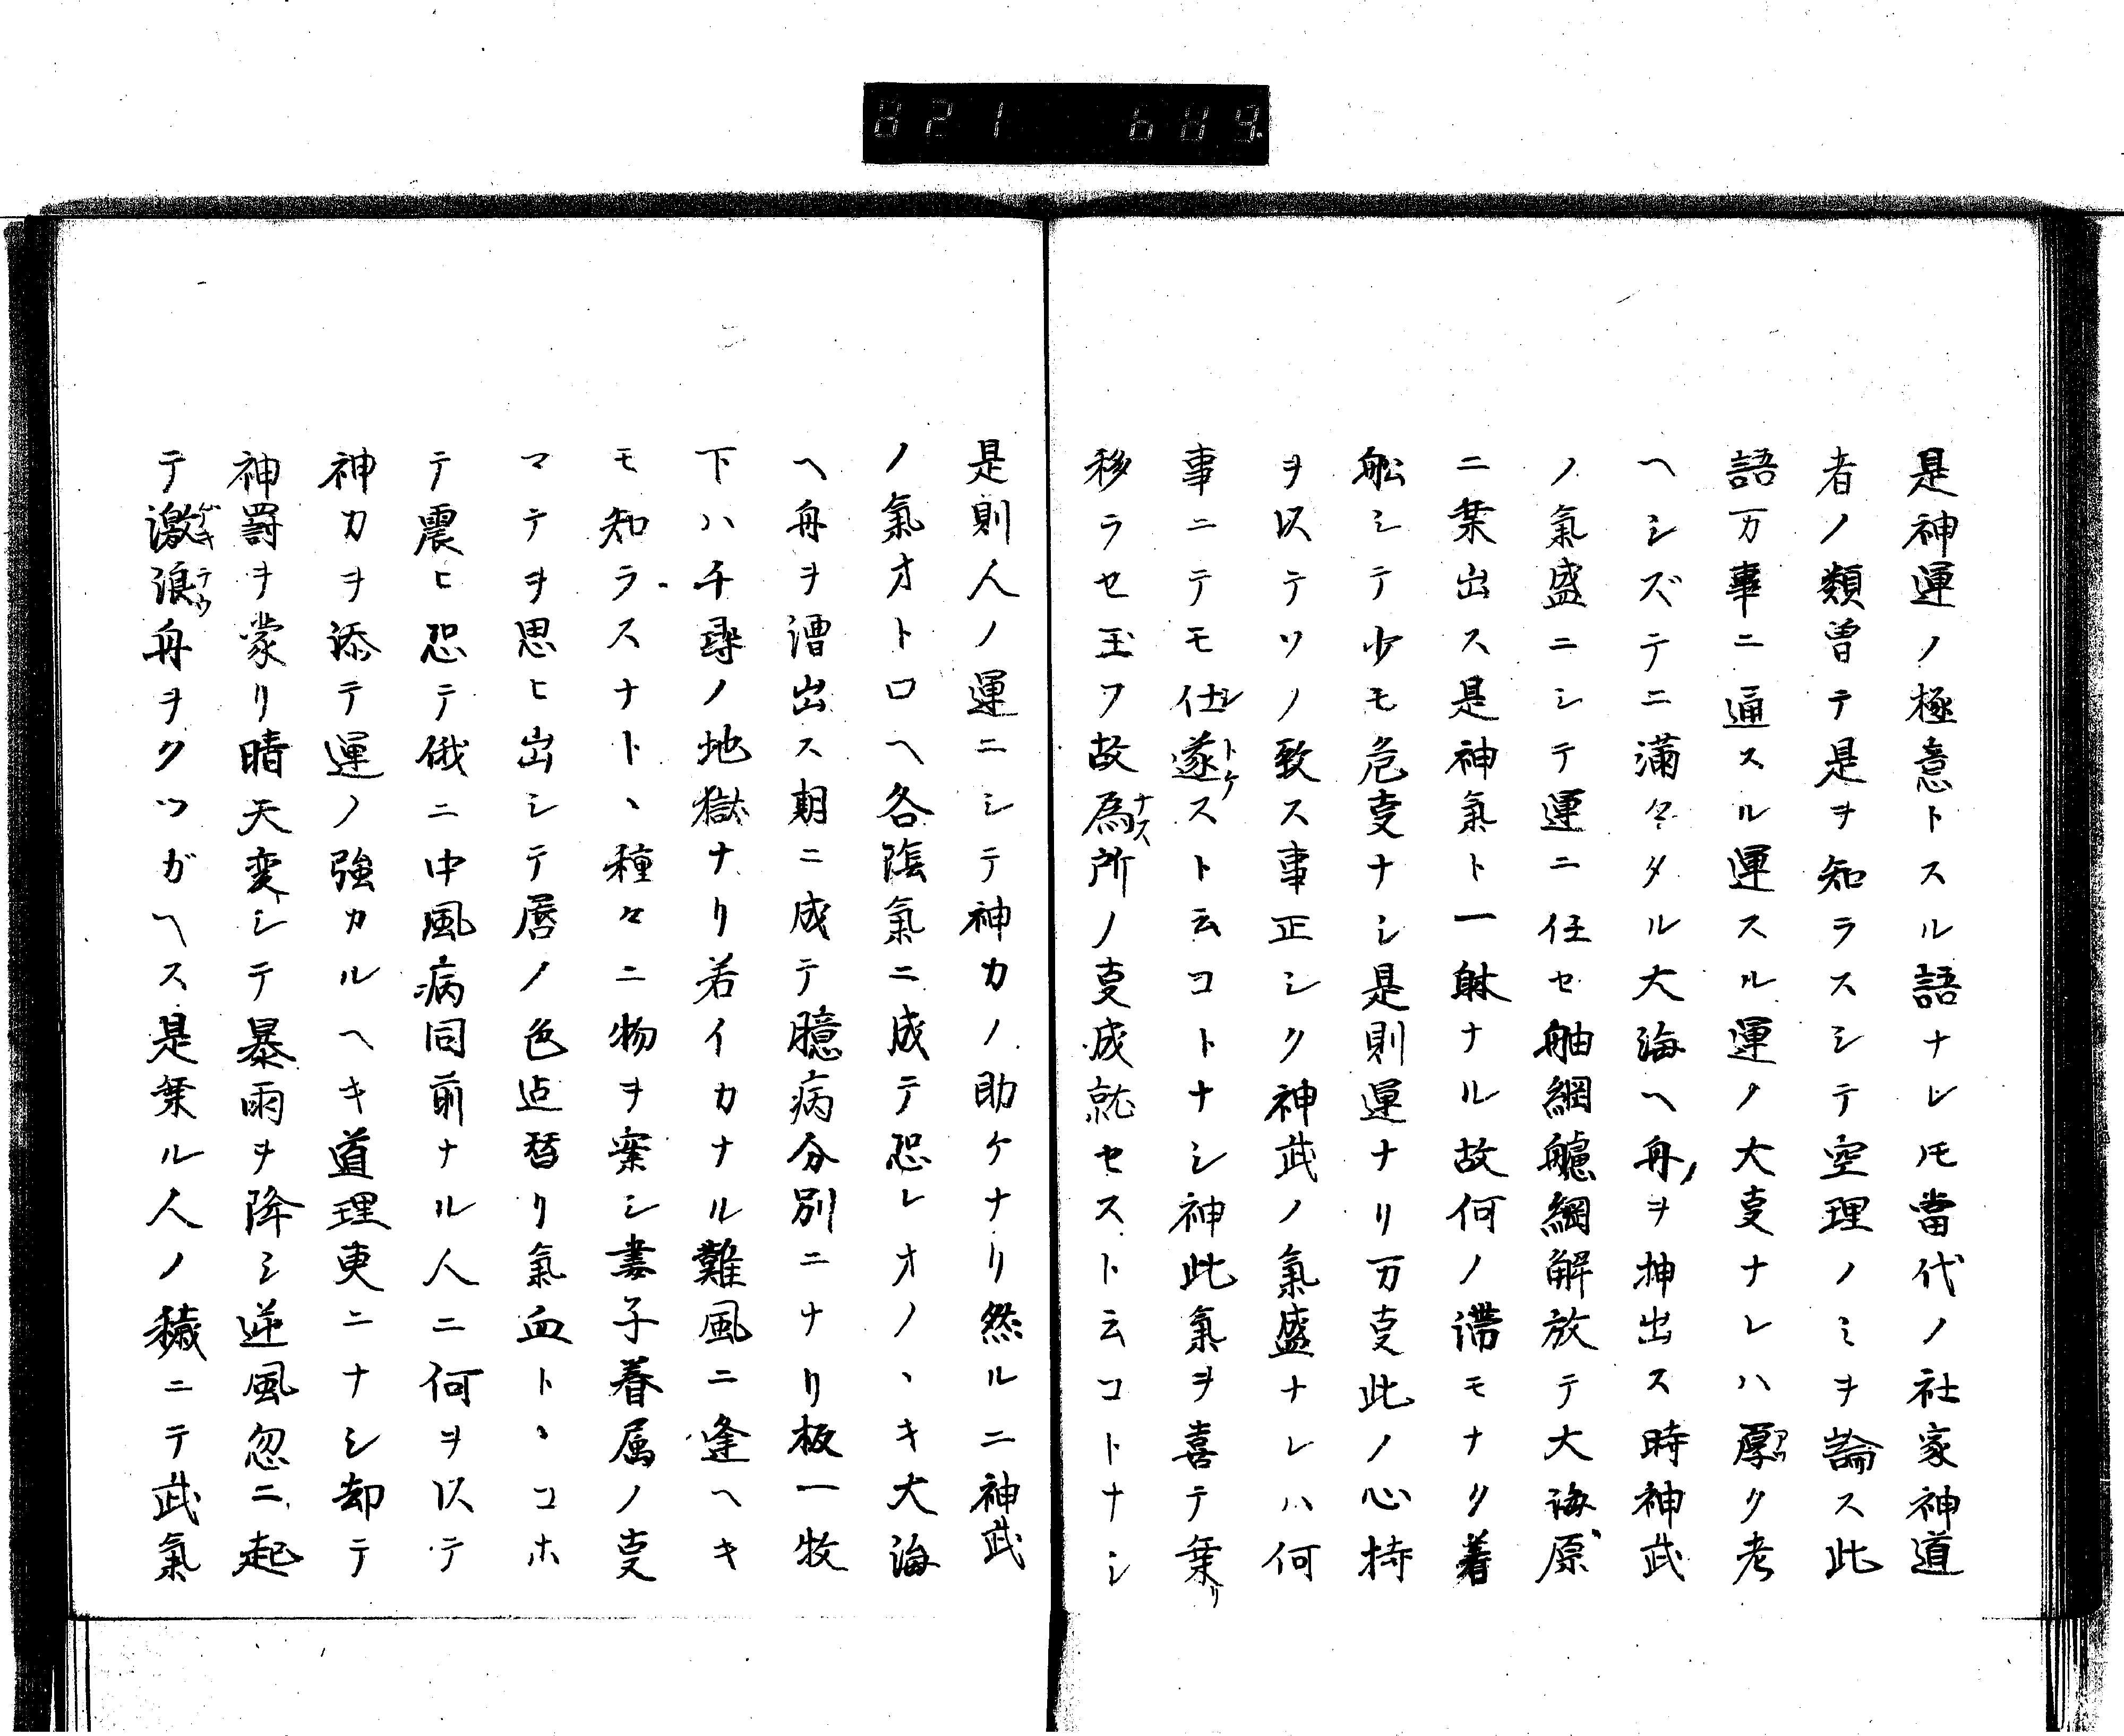 821 689
是神運ノ極意トスル語ナレ𪜈當代ノ社家神道
者ノ類曽テ是ヲ知ラスシテ空理ノミヲ論ス此
語万事ニ通スル運スル運ノ大叓ナレハ厚アツク考
ヘシズデニ満々タル大海ヘ舟ヲ抻出ス時神武
ノ氣盛ニシテ運ニ任セ舳綱艫綱解放テ大海原
ニ葉出ス是神氣ト一躰ナル故何ノ滞モナク着
舩シテ少モ危叓ナシ是則運ナリ万叓此ノ心持
ヲ以テソノ致ス事正シク神武ノ氣盛ナレハ何
事ニテモ仕シ遂トケスト云コトナシ神此氣ヲ喜テ葉リ
移ラセ玉フ故為ナス所ノ叓成就セスト云コトナシ
是則人ノ運ニシテ神力ノ助ケナリ然ルニ神武
ノ氣オトロヘ各陰氣ニ成テ恐レオノヽキ大海
ヘ舟ヲ漕出ス期ニ成テ臆病分別ニナリ板一牧
下ハ千尋ノ地獄ナリ若イカナル難風ニ逢ヘキ
モ知ラスナトヽ種々ニ物ヲ案シ妻子眷属ノ叓
マテヲ思ヒ出シテ唇ノ色迠替リ氣血トヽコホ
テ震ヒ恐テ俄ニ中風病同前ナル人ニ何ヲ以テ
神力ヲ添テ運ノ強カルヘキ道理更ニナシ却テ
神罰ヲ蒙リ晴天変シテ暴雨ヲ降シ逆風忽ニ起
テ激ゲキ浪舟ヲクツガヘス是葉ル人ノ穢ニテ武氣